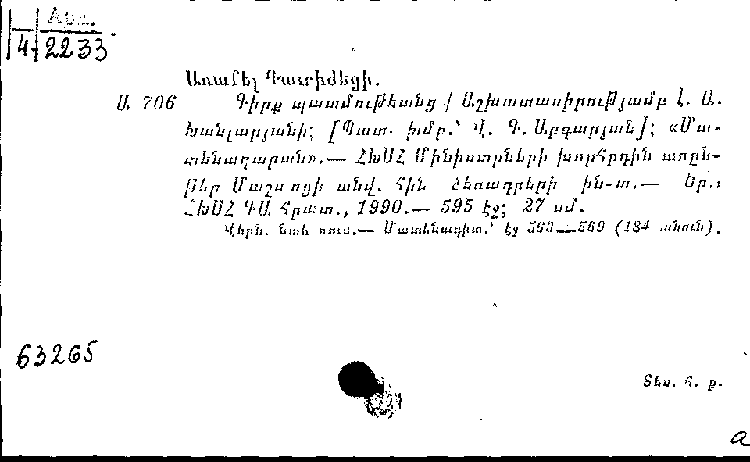 Առաքել Դավրիժեցի.
Ա 706 Գիրք պատմութեանց / Աշխատասիրությամբ Լ. Ա.
Խանլարյանի; [Պատ. խմբ.՝ Վ. Գ. Աբգարյան]; «Մա-
տենադարան».— ՀԽՍՀ Մինիստրների խորհրդին առըն-
թեր Մաշտոցի անվ. հին ձեռագրերի ին-տ.— Եր.:
ՀԽՍՀ ԳԱ հրատ., 1990.— 595 էջ; 27 սմ.
Վերն. նաև ռուս.— Մատենագիտ.՝ էջ 563—569 (184 անուն).
4 2233
63265
Տես. հ. ք.
a